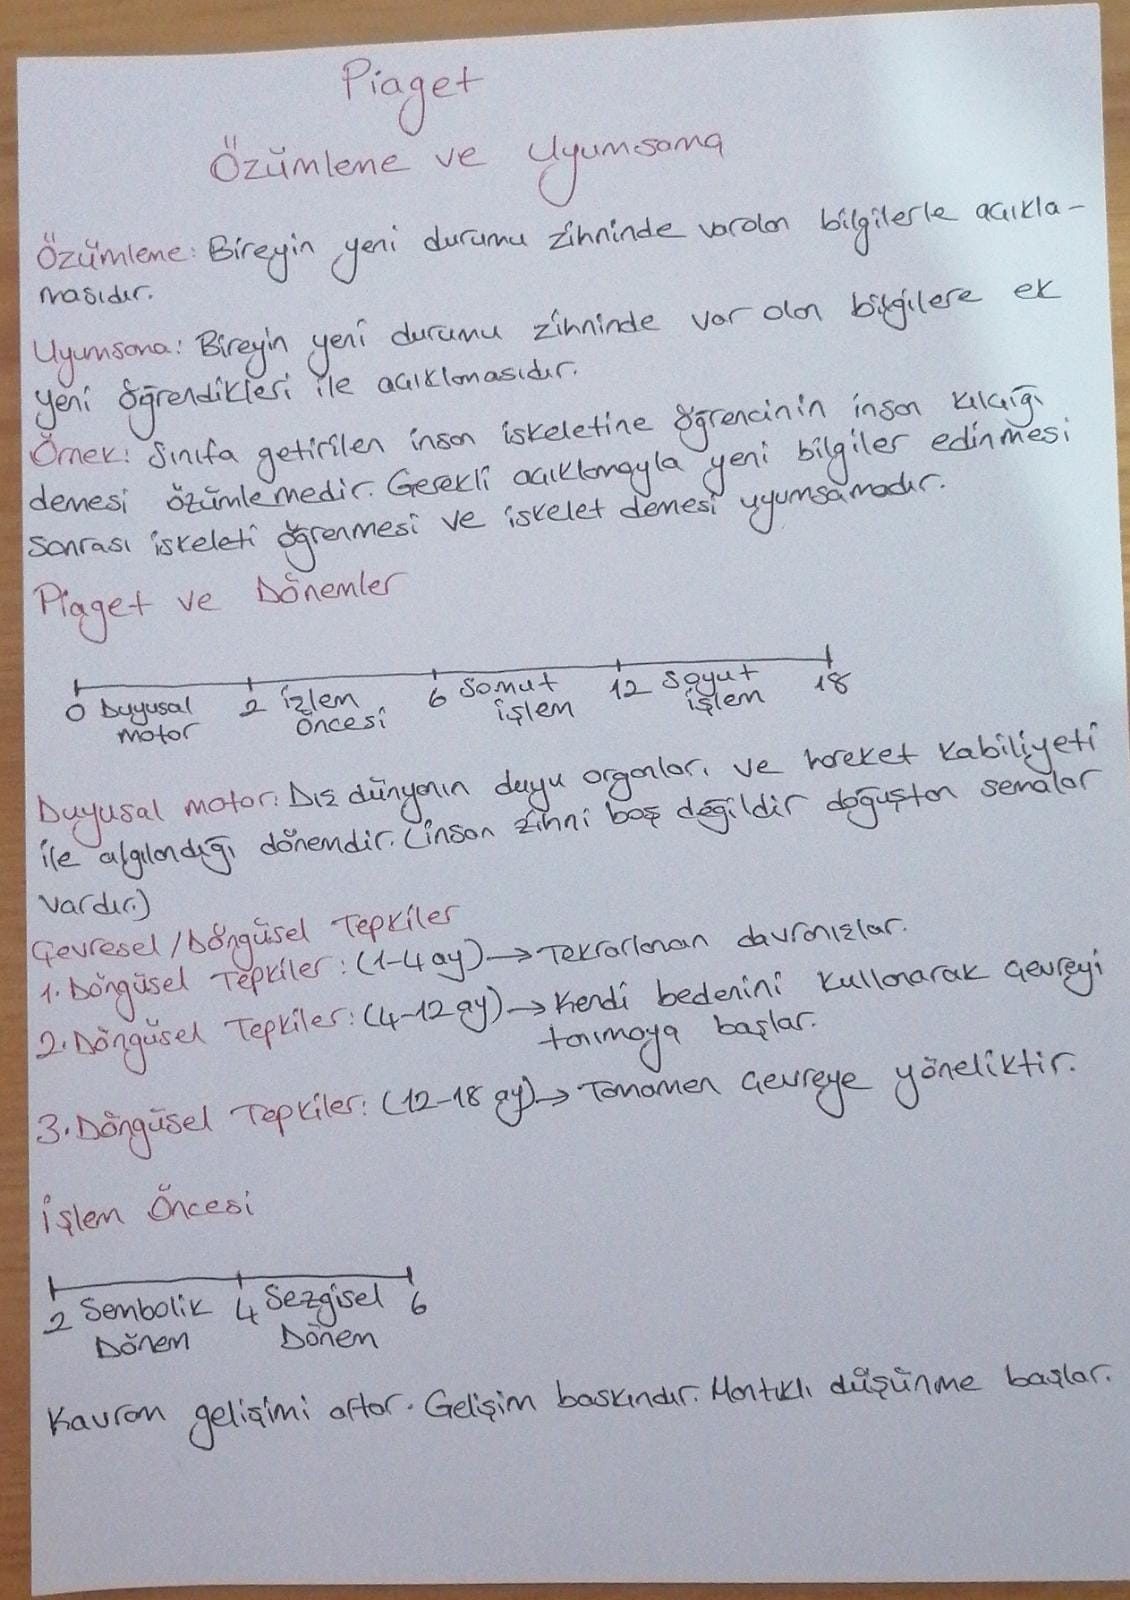 Piaget
Özümleme ve Uyumsama
Özümleme: Bireyin yeni durumu zihninde varolan bilgilerle açıkla-
masıdır.
Uyumsama: Bireyin yeni durumu zihninde var olan bilgilere ek
yeni öğrendikleri ile açıklamasıdır.
Örnek: Sınıfa getirilen insan iskeletine öğrencinin insan kılçığı
demesi özümlemedir. Gerekli açıklamayla yeni bilgiler edinmesi
sonrası iskeleti öğrenmesi ve iskelet demesi uyumsamadır.
Piaget ve Dönemler
0 Duyusal 2 İşlem 6 Somut 12 Soyut 18
motor Öncesi işlem işlem
Duyusal motor: Dış dünyanın duyu organları ve hareket kabiliyeti
ile algılandığı dönemdir. (insan zihni boş değildir doğuştan şemalar
vardır.)
Çevresel/Döngüsel Tepkiler
1. Döngüsel Tepkiler: (1-4 ay) → Tekrarlanan davranışlar.
2. Döngüsel Tepkiler: (4-12 ay) → Kendi bedenini kullanarak çevreyi
tanımaya başlar.
3. Döngüsel Tepkiler: (12-18 ay) → Tamamen çevreye yöneliktir.
İşlem Öncesi
2 Sembolik 4 Sezgisel 6
Dönem Dönem
Kavram gelişimi artar. Gelişim baskındır. Mantıklı düşünme başlar.